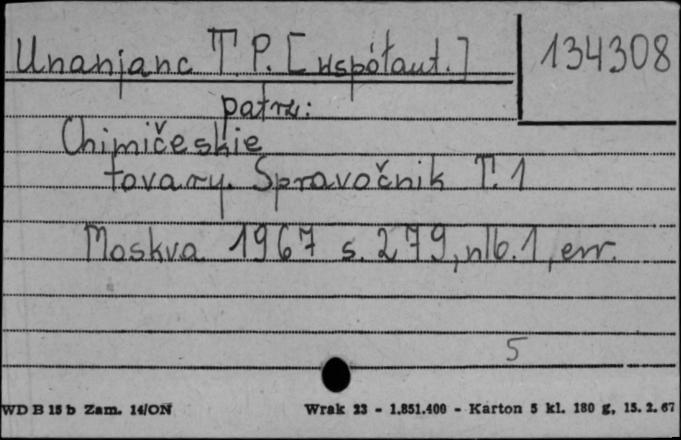 Unanjanc T. P. [współaut.]
134308
patrz:
Chimičeskie
tovary. Spravočnik T. 1
Moskva 1967 s. 279, nlb. 1, err.
5
WD B 15 b Zam. 14/ON
Wrak 23 - 1.851.400 - Karton 5 kl. 180 g, 15. 2. 67